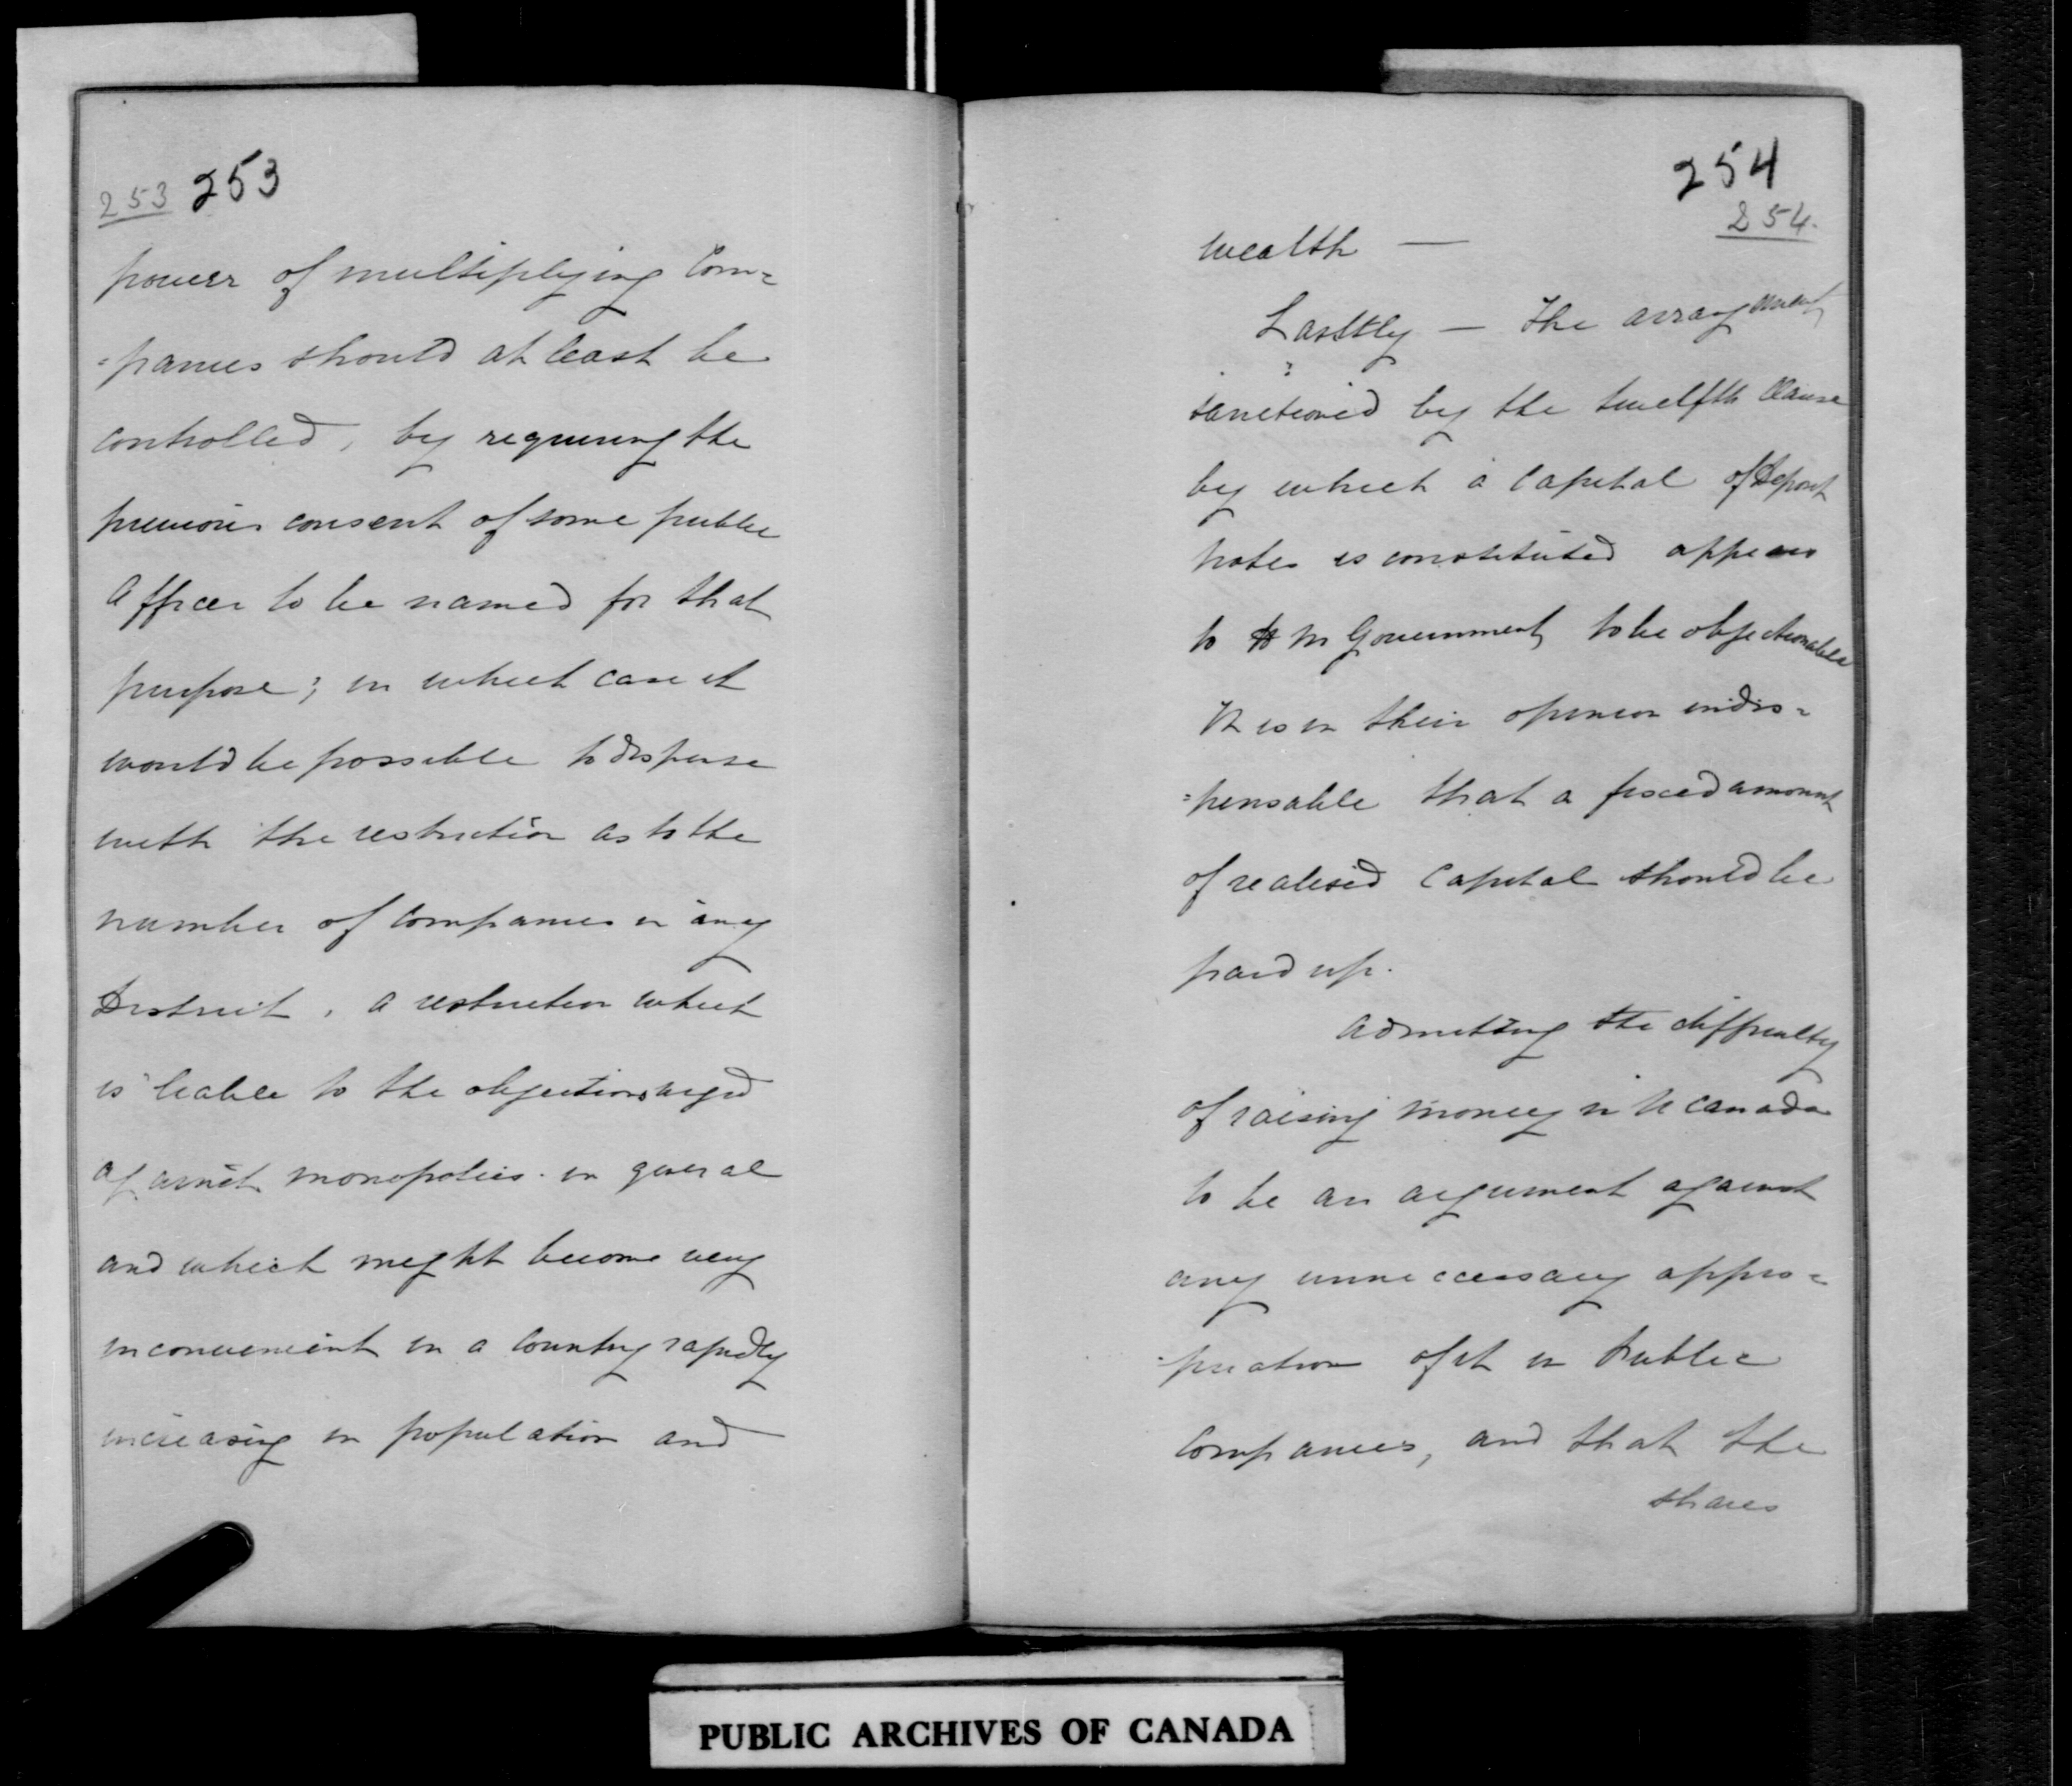 253 253
power of multiplying Com=
=panies should at least be
controlled, by requiring the
previous consent of some public
Officer to be named for that
purpose; in which case it
would be possible to dispense
with the restriction as to the
number of Companies in any
District, a restriction which
is liable to the objections urged
against monopolies in general
and which might become very
inconvenient in a Country rapidly
increasing in population and
254
254.
wealth —
Lastly — The arrangement
sanctioned by the twelfth Clause
by which a Capital of Deposit
notes is constituted appears
to H M Government to be objectionable
It is in their opinion indis=
=pensable that a fixed amount
of realised Capital should be
paid up.
Admitting the difficulty
of raising money in U Canada
to be an argument against
any unneccessary appro=
=priation of it in Public
Companies, and that the
shares
PUBLIC ARCHIVES OF CANADA